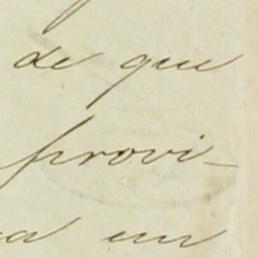 de que
provi-
un